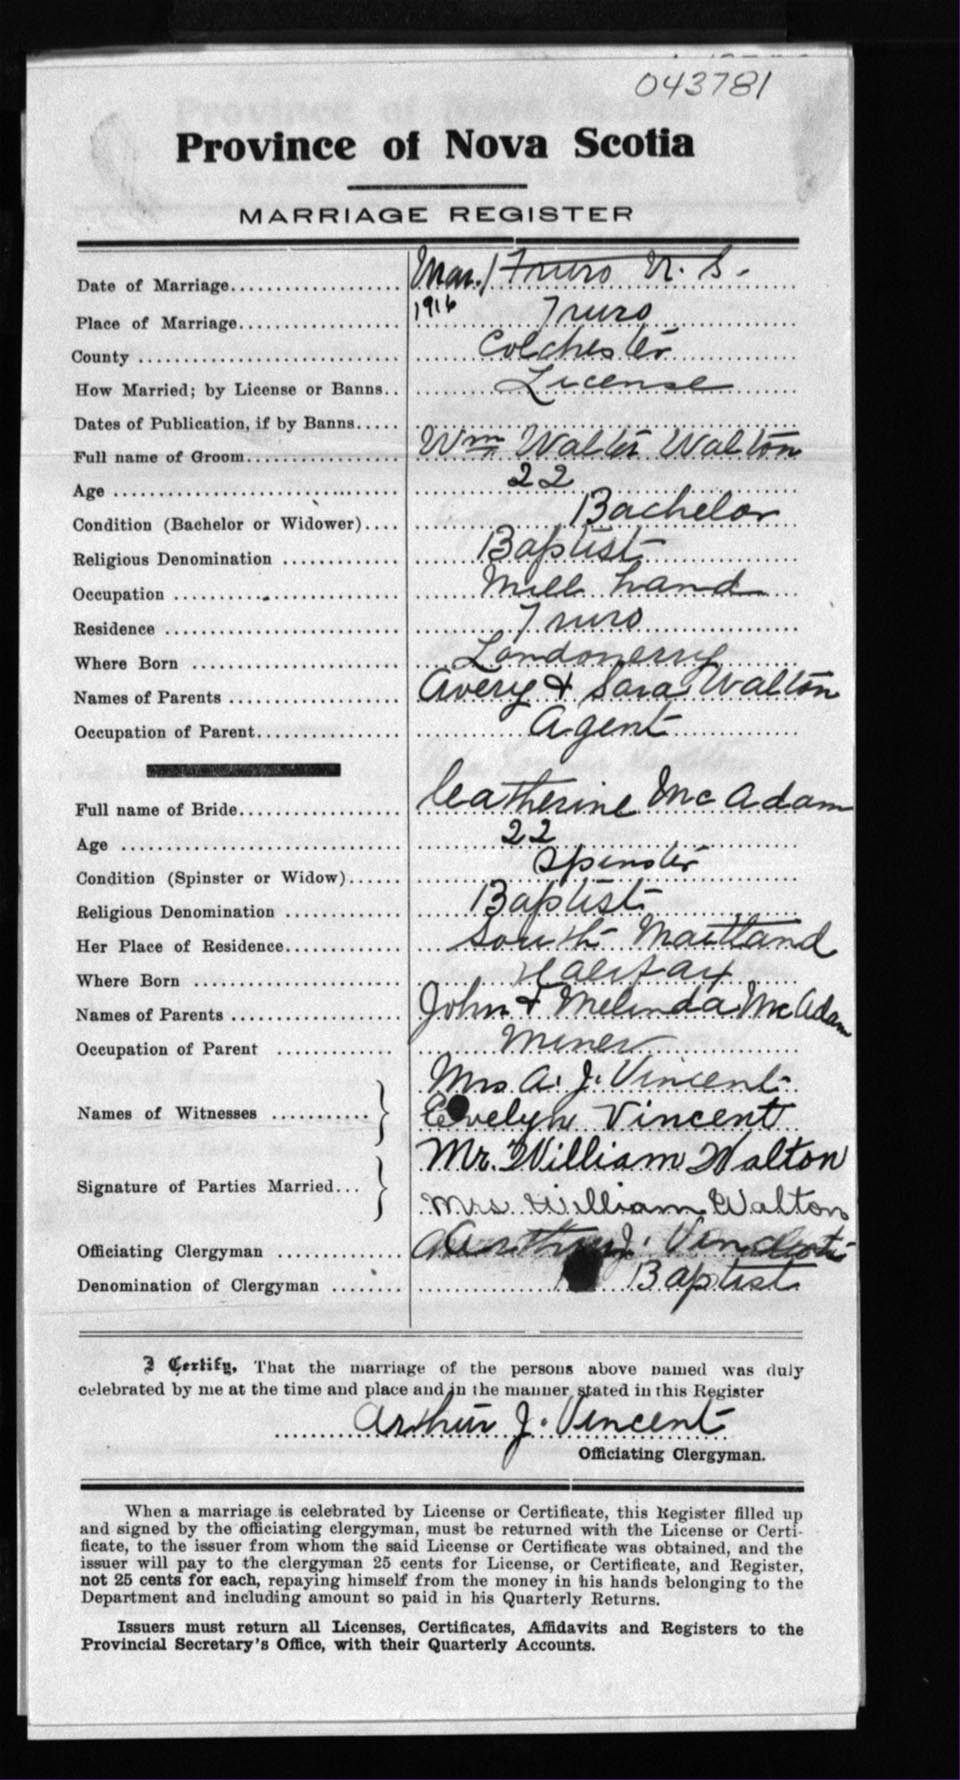 043781
Province of Nova Scotia
MARRIAGE REGISTER
Date of Marriage.................... Mar. 1 Truro N. S.
1916
Place of Marriage................... Truro
County ............................... Colchester
How Married; by License or Banns.. License
Dates of Publication, if by Banns.....
Full name of Groom.................. Wm Walter Walton
Age .................................. 22
Condition (Bachelor or Widower).... Bachelor
Religious Denomination ............. Baptist
Occupation .......................... Mill hand
Residence ........................... Truro
Where Born ......................... Londonerry
Names of Parents ................... Avery & Sara Walton
Occupation of Parent................ Agent
Full name of Bride................... Catherine McAdam
Age .................................. 22
Condition (Spinster or Widow)...... Spinster
Religious Denomination ............. Baptist
Her Place of Residence.............. South Maitland
Where Born ......................... Halifax
Names of Parents ................... John & Melinda McAdam
Occupation of Parent ............... Miner
Mrs A. J. Vincent
Names of Witnesses ........... } Evelyn Vincent
Mr. William Walton
Signature of Parties Married... }
Mrs. William Walton
Officiating Clergyman .............. Arthur J. Vincent
Denomination of Clergyman ........ Baptist
I Certify, That the marriage of the persons above named was duly
celebrated by me at the time and place and in the manner stated in this Register
Arthur J. Vincent
Officiating Clergyman.
When a marriage is celebrated by License or Certificate, this Register filled up
and signed by the officiating clergyman, must be returned with the License or Certi-
ficate, to the issuer from whom the said License or Certificate was obtained, and the
issuer will pay to the clergyman 25 cents for License, or Certificate, and Register,
not 25 cents for each, repaying himself from the money in his hands belonging to the
Department and including amount so paid in his Quarterly Returns.
Issuers must return all Licenses, Certificates, Affidavits and Registers to the
Provincial Secretary's Office, with their Quarterly Accounts.